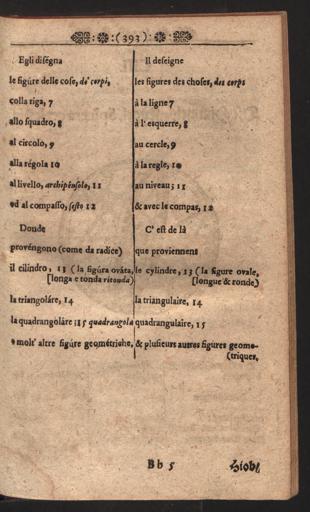 (393)
Egli diségna
le figúre delle cose, de' corpi,
colla riga, 7
allo squadro, 8
al circolo, 9
alla régola 10
al livello, archipénsolo, 11
ed al compasso, sesto 12
Donde
provéngono (come da radice)
il cilindro, 13 (la figúra ováta,
[longa e tonda ritonda)
la triangoláre, 14
la quadrangoláre ;15 quadrangola
e molt' altre figúre geométriche,
Il deseigne
les figures des choses, des corps
à la ligne 7
à l' esquerre, 8
au cercle, 9
à la regle, 10
au niveau; 11
& avec le compas, 12
C' est de là
que proviennent
le cylindre, 13 (la figure ovale,
[longue & ronde)
la triangulaire, 14
quadrangulaire, 15
& plusieurs autres figures geome-
(triques,
Bb 5